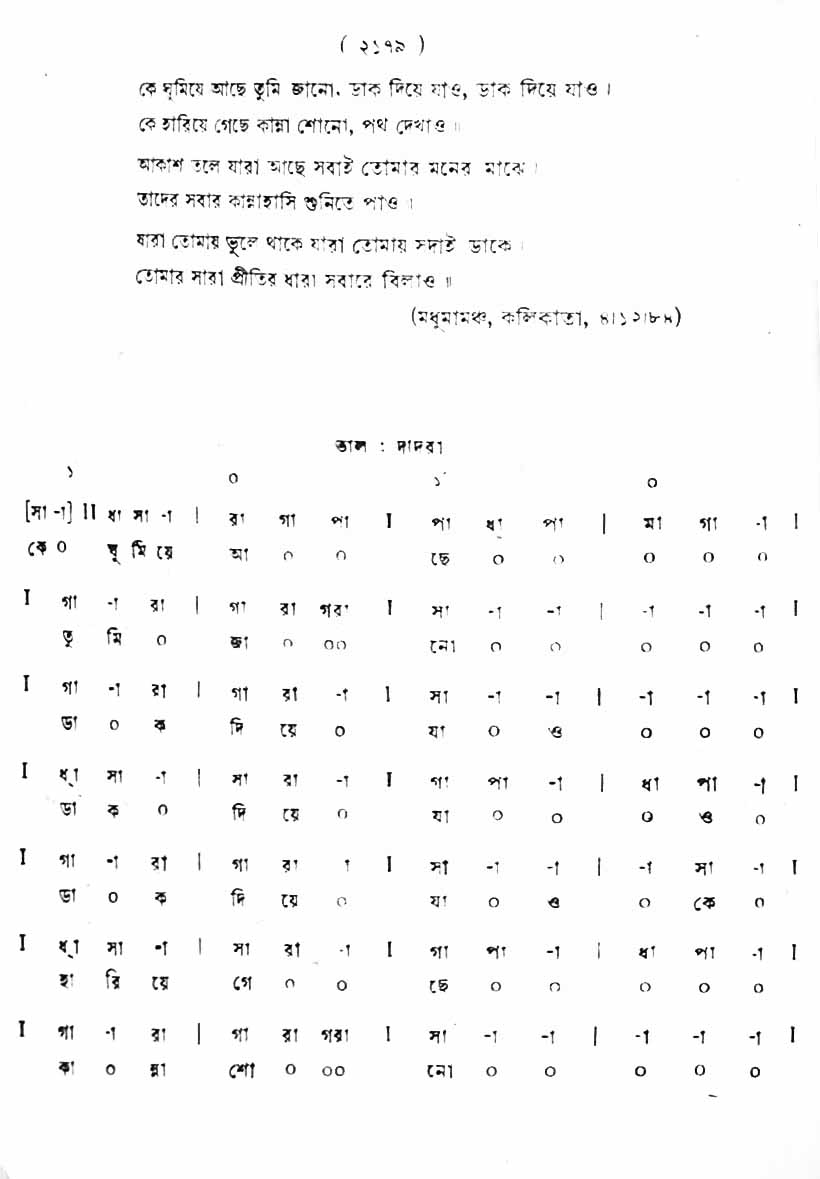 ( ২১৭৯ )
কে ঘুমিয়ে আছে তুমি জানো. ডাক দিয়ে যাও, ডাক দিয়ে যাও ।
কে হারিয়ে গেছে কান্না শোনো, পথ দেখাও ॥
আকাশ তলে যারা আছে সবাই তোমার মনের মাঝে ।
তাদের সবার কান্নাহাসি শুনিতে পাও ।
যারা তোমায় ভুলে থাকে যারা তোমায় সদাই ডাকে ।
তোমার সারা প্রীতির ধারা সবারে বিলাও ॥
(মধুমামঞ্চ, কলিকাতা, ৪।১২।৮৪)
তাল : দাদরা
১ ০ ১´ ০
[সা -া] II ধা সা -া | রা গা পা I পা ধা পা | মা গা -া I
কে ০ ঘু মি য়ে আ ০ ০ ছে ০ ০ ০ ০ ০
I গা -া রা | গা রা গরা I সা -া -া | -া -া -া I
তু মি ০ জা ০ ০০ নো ০ ০ ০ ০ ০
I গা -া রা | গা রা -া I সা -া -া | -া -া -া I
ডা ০ ক দি য়ে ০ যা ০ ও ০ ০ ০
I ধ্া সা -া | সা রা -া I গা পা -া | ধা পা -া I
ডা ক ০ দি য়ে ০ যা ০ ০ ০ ও ০
I গা -া রা | গা রা া I সা -া -া | -া সা -া I
ডা ০ ক দি য়ে ০ যা ০ ও ০ কে ০
I ধ্া সা -া | সা রা -া I গা পা -া | ধা পা -া I
হা রি য়ে গে ০ ০ ছে ০ ০ ০ ০ ০
I গা -া রা | গা রা গরা I সা -া -া | -া -া -া I
কা ০ ন্না শো ০ ০০ নো ০ ০ ০ ০ ০